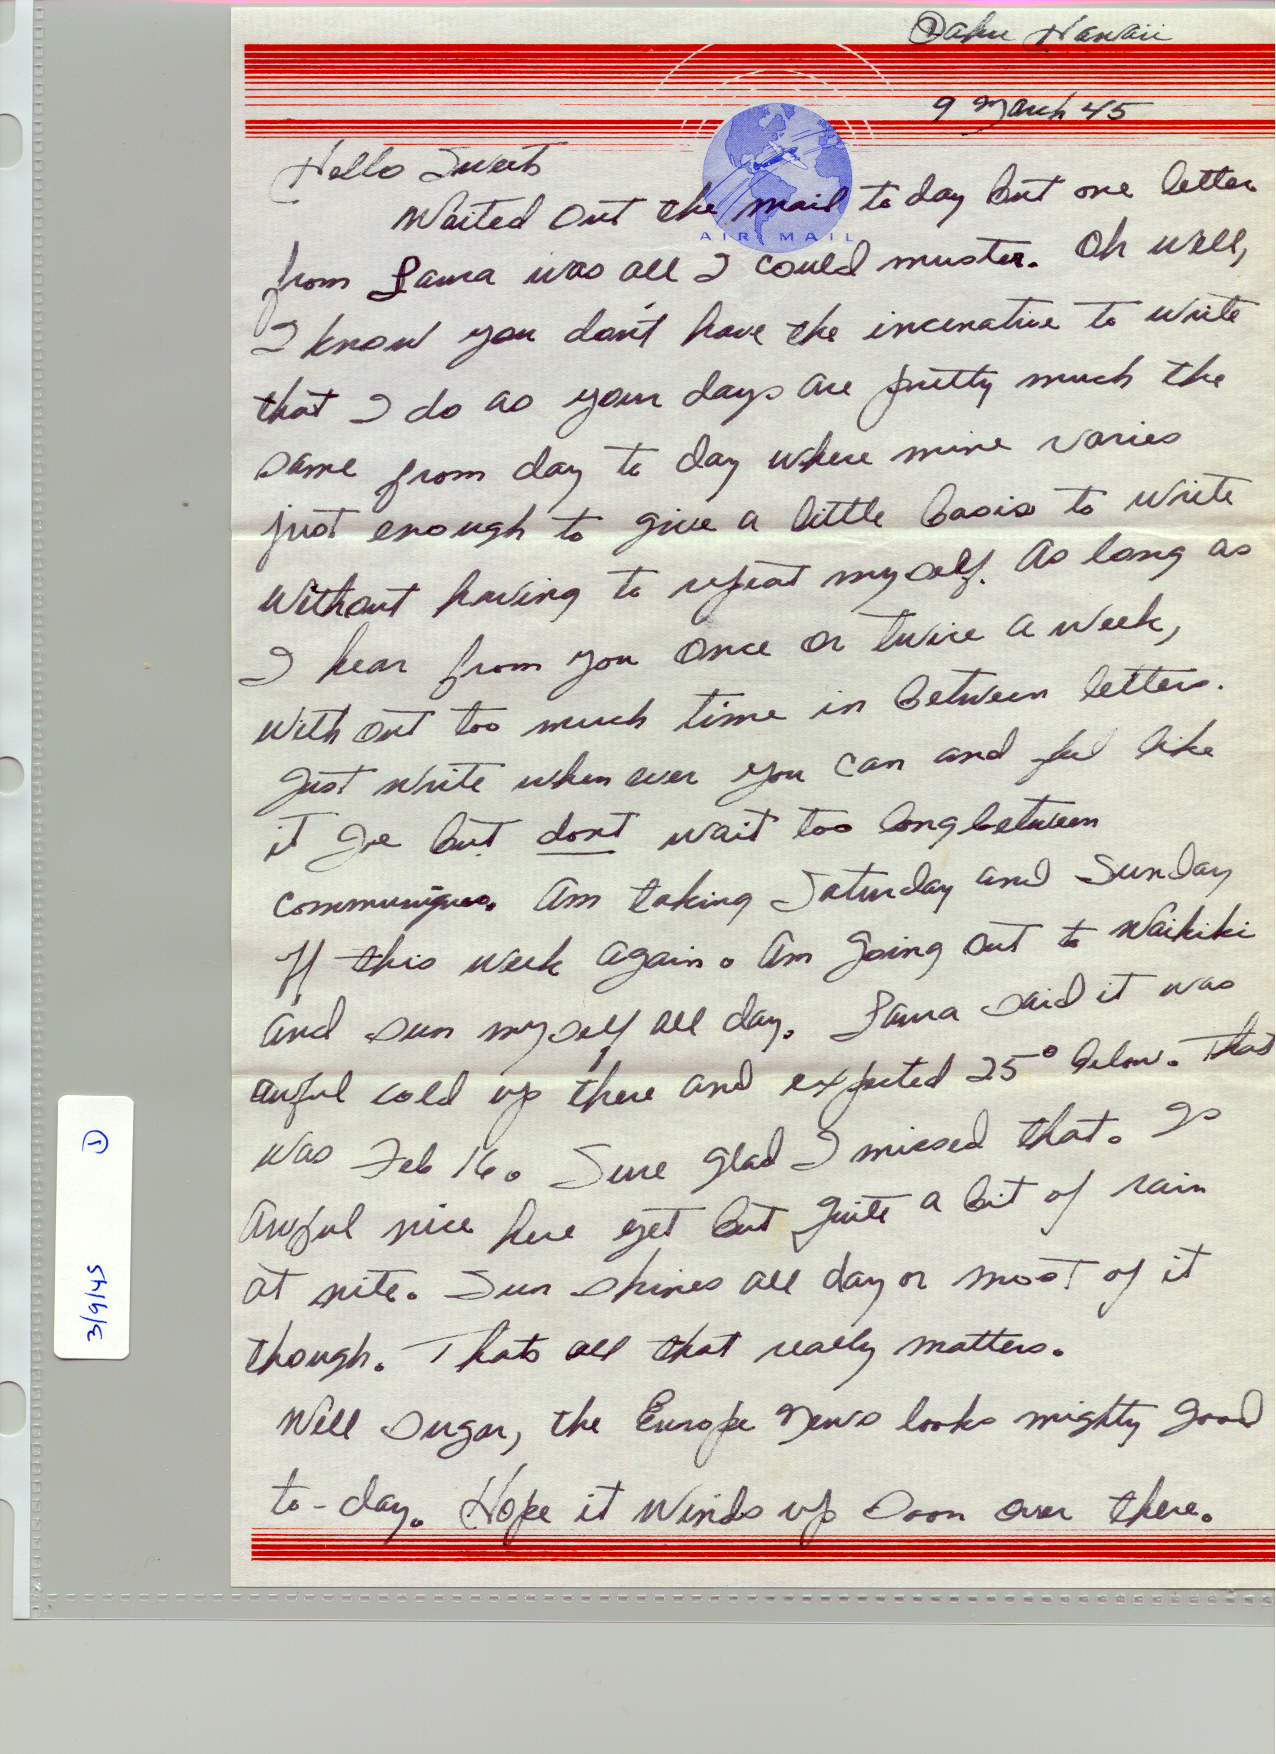 Oahu Hawaii
9 March 45
Hello Sweets
Waited out the mail to day but one letter
from Laura was all I could muster. Oh well,
I know you don't have the incenative to write
that I do as your days are pretty much the
same from day to day where mine varies
just enough to give a little basis to write
without having to repeat myself. As long as
I hear from you once or twice a week,
with out too much time in between letters.
Just write when ever you can and feel like
it but dont wait too long between
communiques. Am taking Saturday and Sunday
off this week again. Am going out to Waikiki
and sun myself all day. Laura said it was
awful cold up there and expected 25° below. That
was Feb 16. Sure glad I missed that. Is
awful nice here yet but quite a bit of rain
at nite. Sun shines all day or most of it
though. Thats all that really matters.
Well sugar, the Europe News looks mighty good
to-day. Hope it winds up soon over there.
AIR MAIL
3/9/45 ①